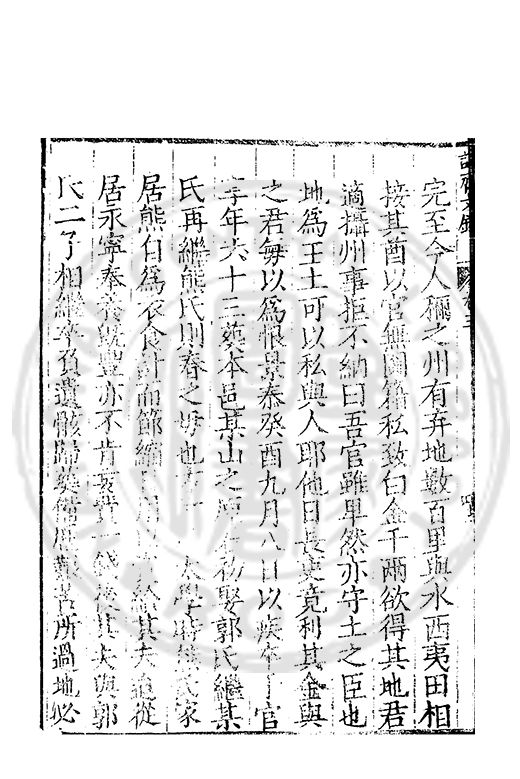 完至今人稱之州有弃地數百里與水西夷田相
接其酋以官無圖籍私致白金千兩欲得其地君
適攝州事拒不納曰吾官雖卑然亦守土之臣也
地爲王土可以私與人耶他日長吏竟利其金與
之君每以爲恨景泰癸酉九月八日以疾卒于官
享年六十三葬本邑某山之原 初娶郭氏繼某
氏再繼熊氏則春之母也 太學時熊氏家
居熊自爲衣食計而節縮 給其夫迨從
居永寧奉養旣豐亦不肯妄費一錢後其夫與郭
氏二子相繼卒負遺骸歸葬備歷艱苦所過地必